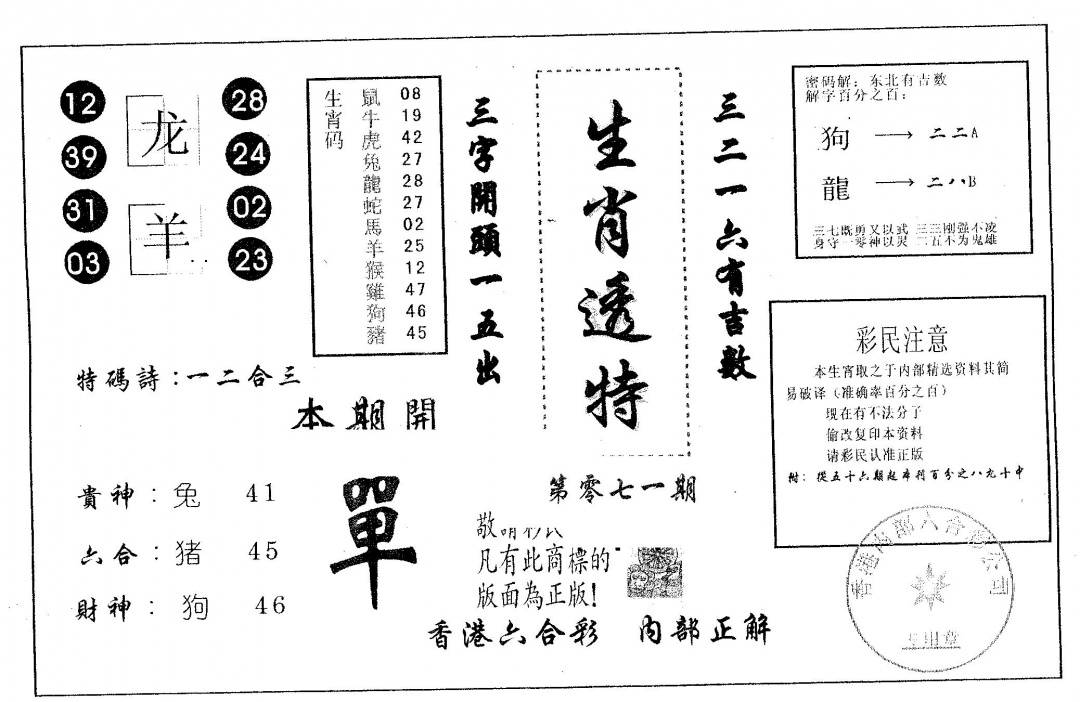 12
39
31
03
龙
羊
28
24
02
23
生肖码
鼠 08
牛 19
虎 42
兔 27
龍 28
蛇 27
馬 02
羊 25
猴 12
雞 47
狗 46
豬 45
三字開頭一五出
生肖透特
三二一六有吉数
密码解：东北有吉数
解字百分之百：
狗 → 二二A
龍 → 二八B
三七既勇又以武 三三刚强不凌
身守一零神以灵 二五不为鬼雄
特碼詩：一二合三
本期開
單
貴神：兔 41
六合：猪 45
財神：狗 46
第零七一期
敬
凡有此商標的
版面為正版!
香港六合彩 内部正解
彩民注意
本生宵取之于内部精选资料其简
易破译（准确率百分之百）
现在有不法分子
偷改复印本资料
请彩民认准正版
附：從五十六期起本刊百分之八九十中
香港内部六合彩公司
专用章